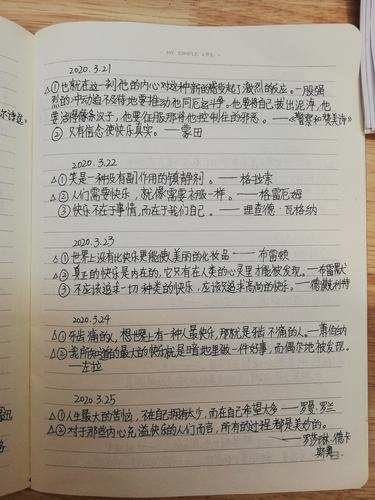 - MY SIMPLE LIFE -
2020.3.21
△①也就在这一刻他的内心对这种新的感受起了激烈的反应。一股强
烈的冲动迫不及待地要推动他同厄运斗争。他要将自己拔出泥淖,他
要活得像条汉子,他要征服那将他控制住的邪恶。——《警察和赞美诗》
②只有信念使快乐真实。——蒙田
2020.3.22
△①笑是一种没有副作用的镇静剂。——格拉索
△②人们需要快乐,就像需要衣服一样。——格雷厄姆
③快乐不在于事情,而在于我们自己。——理查德·瓦格纳
2020.3.23
△①世上没有比快乐更能使人美丽的化妆品——布雷顿
△②真正的快乐是内在的,它只有在人类的心灵里才能被发现。——布雷默
③不应该追求一切种类的快乐,应该只追求高尚的快乐。——德谟克利特
2020.3.24
△①牙齿痛的人,想世界上有一种人最快乐,那就是牙齿不痛的人。——萧伯纳
△②我所知道的最大的快乐就是暗地里做一件好事,而偶尔地被发现。
——左拉
2020.3.25
△①人生最大的苦恼,不在自己拥有太少,而在自己希望太多——罗曼·罗兰
△②对于那些内心充溢快乐的人们而言,所有的过程都是美妙的。
——罗莎琳·德卡
斯奥